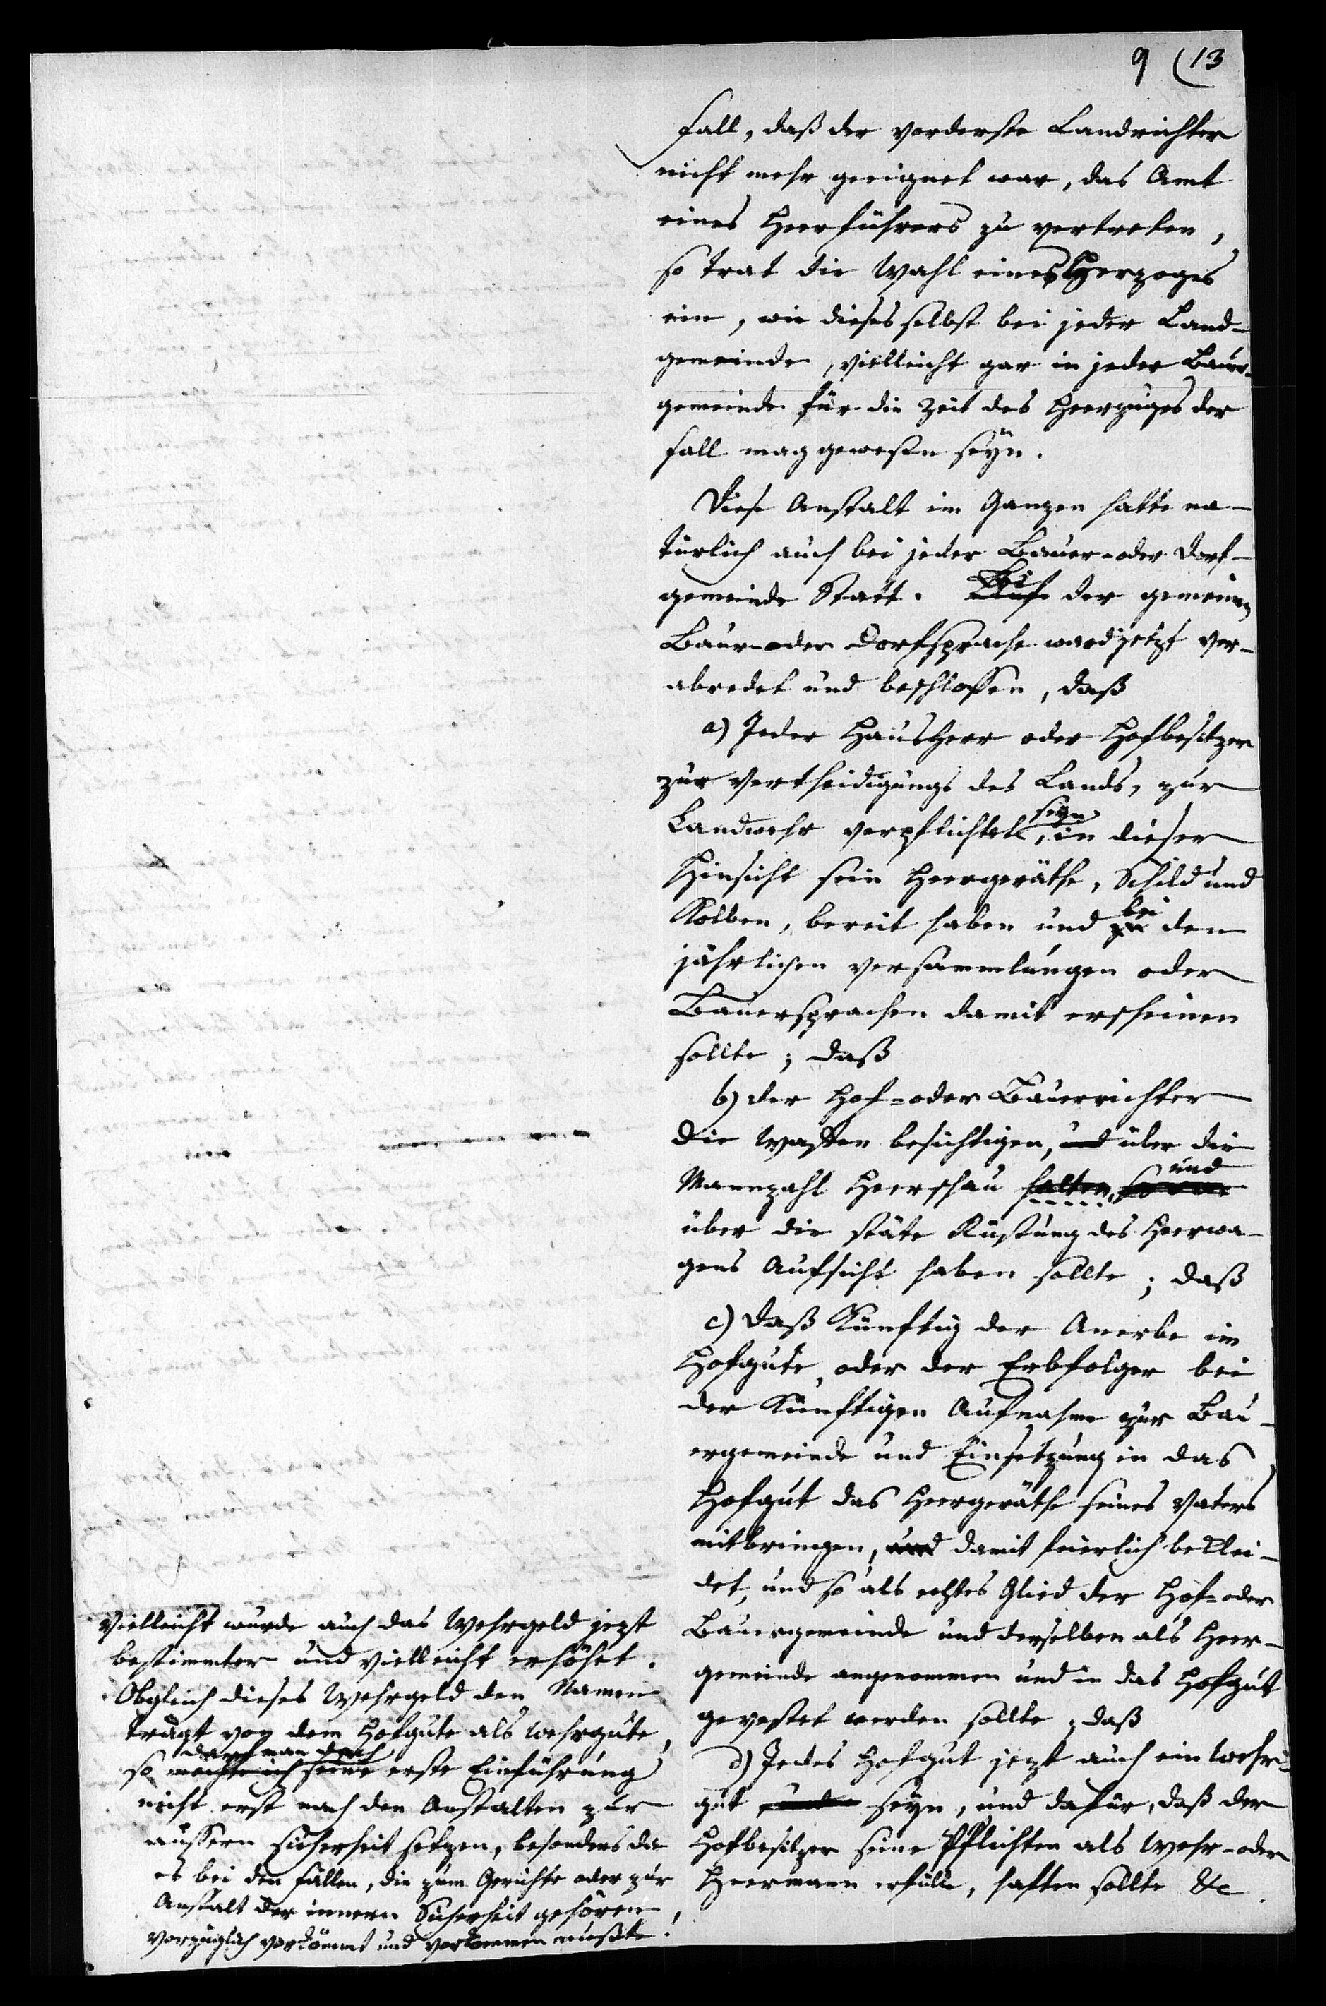 9 (13
Fall, daß der vorderste Landrichter
nicht mehr geeignet war, das Amt
eines Heerführers zu vertreten,
so trat die Wahl eines Herzoges
ein, wie dieses selbst bei jeder Land-
gemeinde, vielleicht gar in jeder Bauer-
gemeinde für die Zeit des Heerzuges der
Fall mag gewesen seyn.
Diese Anstalt im Ganzen hatte na-
türlich auch bei jeder Bauer- oder Dorf-
gemeinde Statt. Bei
Auf der gemeinen
Baur- oder Dorfsprache ward jetzt ver-
abredet und beschlossen, daß
a) Jeder Hausherr oder Hofbesitzer
zur Vertheidigung des Lands, zur
Landwehr verpflichtet seyn, in dieser
Hinsicht sein Heergeräthe, Schild und
Kolben, bereit haben und zu bei den
jährlichen Versammlungen oder
Bauersprachen damit erscheinen
sollte; daß
b) der Hof- oder Bauerrichter
die Waffen besichtigen, und über die
Mannzahl Heerschau halten, und
über die stäte Rüstung des Heerwa-
gens Aufsicht haben sollte; daß
c) daß künftig der Anerbe im
Hofgute, oder der Erbfolger bei
der künftigen Aufnahme zur Bau-
ergemeinde und Einsetzung in das
Hofgut das Heergeräthe seines Vaters
mitbringen, und damit feierlich beklei-
det, und so als echtes Glied der Hof- oder
Bauergemeinde und derselben als Heer-
gemeinde angenommen und in das Hofgut
gevestet werden sollte, daß
d) Jedes Hofgut jezt auch ein Wehr-
gut seyn, und dafür, daß der
Hofbesitzer seine Pflichten als Wehr- oder
Heermann erfülle, haften sollte &c.
Vielleicht wurde auch das Wehrgeld jezt
bestimmter und vielleicht erhöhet.
Obgleich dieses Wehrgeld den Namen
trägt von dem Hofgute als Wehrgute,
darf man doch
so möchte ich seine erste Einführung
nicht erst nach den Anstalten zur
äussern Sicherheit setzen, besonders da
es bei den Fällen, die zum Gerichte oder zur
Anstalt der innern Sicherheit gehören,
vorzüglich vorkömmt und vorkommen mußte!